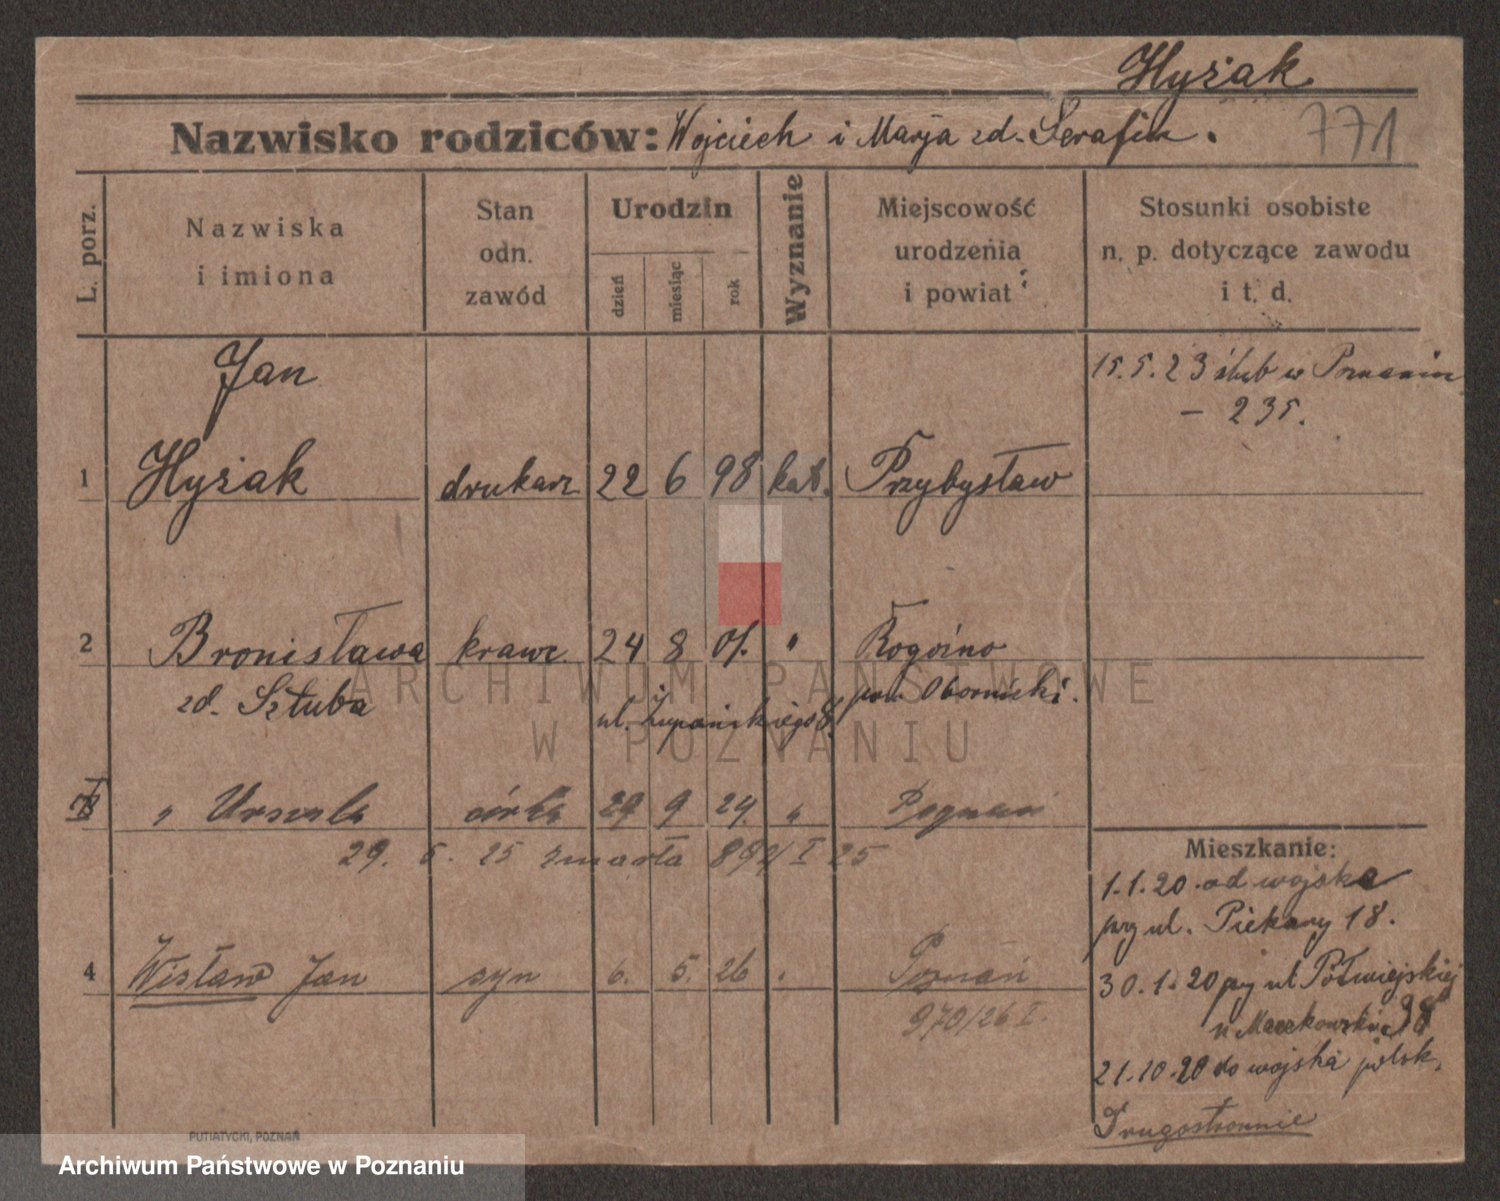 Hyżak
Nazwisko rodziców: Wojciech i Marja zd. Serafin. 771
L. porz.
Nazwiska i imiona
Stan odn. zawód
Urodzin
dzień miesiąc rok
Wyznanie
Miejscowość urodzenia i powiat
Stosunki osobiste n. p. dotyczące zawodu i t. d.
Jan
15.5.23 ślub w Poznaniu
- 235.
1 Hyżak drukarz 22 6 98 kat. Przybysław
2 Bronisława krawc. 24 8 01. " Rogoźno
zd. Sztuba pow. Obornicki.
ul. Żupańskiego 8.
" Urszula córka 29 9 24. " Poznań
29. 5. 25 zmarła I 25
4 Wiesław Jan syn 6. 5. 26 . Poznań
970/26 I.
Mieszkanie:
1.1.20 od wojska
przy ul. Piekary 18.
30.1.20 przy ul Półwiejskiej
38
21.10.20 do wojska polsk.
Drugostronnie
PUTIATYCKI, POZNAŃ
ARCHIWUM PAŃSTWOWE
W POZNANIU
Archiwum Państwowe w Poznaniu